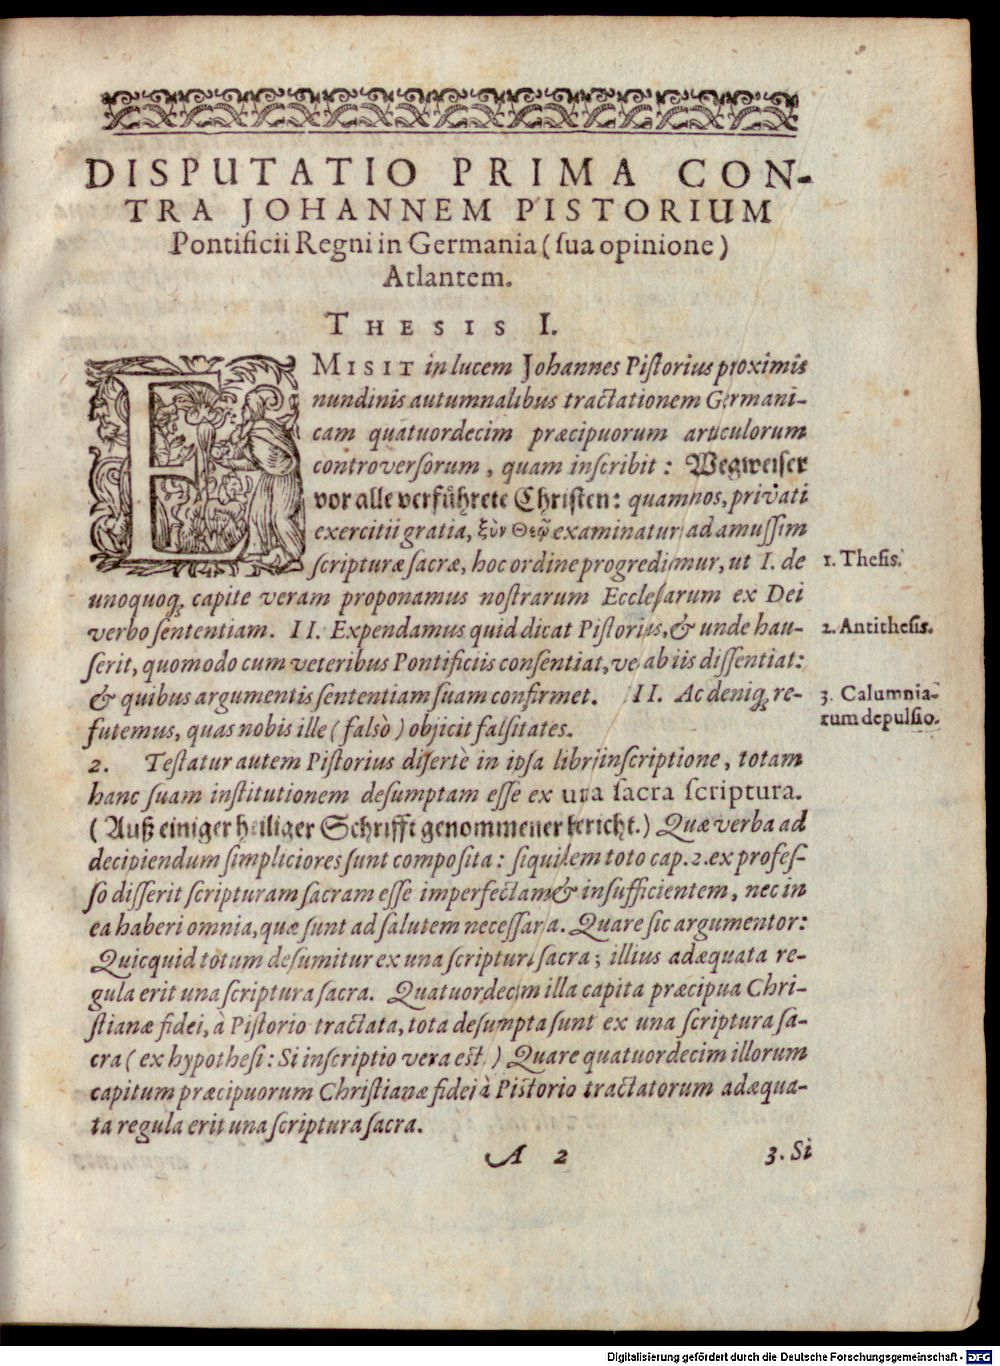 DISPUTATIO PRIMA CON-
TRA JOHANNEM PISTORIUM
Pontificii Regni in Germania (sua opinione)
Atlantem.
THESIS I.
EMISIT in lucem Johannes Pistorius proximis
nundinis autumnalibus tractationem Germani-
cam quatuordecim præcipuorum articulorum
controversorum, quam inscribit: Wegweiser
vor alle verführete Christen: quam nos, privati
exercitii gratia, ξὺν Θεῷ examinaturi ad amussim
scripturæ sacræ, hoc ordine progrediemur, ut I. de
1. Thesis.
unoquoq; capite veram proponamus nostrarum Ecclesiarum ex Dei
verbo sententiam. II. Expendamus quid dicat Pistorius, & unde hau-
2. Antithesis.
serit, quomodo cum veteribus Pontificiis consentiat, ve ab iis dissentiat:
& quibus argumentis sententiam suam confirmet. III. Ac deniq; re-
3. Calumnia-
rum depulsio.
futemus, quas nobis ille (falsò) objicit falsitates.
2. Testatur autem Pistorius disertè in ipsa libri inscriptione, totam
hanc suam institutionem desumptam esse ex una sacra scriptura.
(Auß einiger heiliger Schrifft genommener bericht.) Quæ verba ad
decipiendum simpliciores sunt composita: siquidem toto cap. 2. ex profes-
so disserit scripturam sacram esse imperfectam & insufficientem, nec in
ea haberi omnia, quæ sunt ad salutem necessaria. Quare sic argumentor:
Quicquid totum desumitur ex una scriptura sacra; illius adæquata re-
gula erit una scriptura sacra. Quatuordecim illa capita præcipua Chri-
stianæ fidei, à Pistorio tractata, tota desumpta sunt ex una scriptura sa-
cra (ex hypothesi: Si inscriptio vera est.) Quare quatuordecim illorum
capitum præcipuorum Christianæ fidei à Pistorio tractatorum adæqua-
ta regula erit una scriptura sacra.
A 2
3. Si
Digitalisierung gefördert durch die Deutsche Forschungsgemeinschaft - DFG